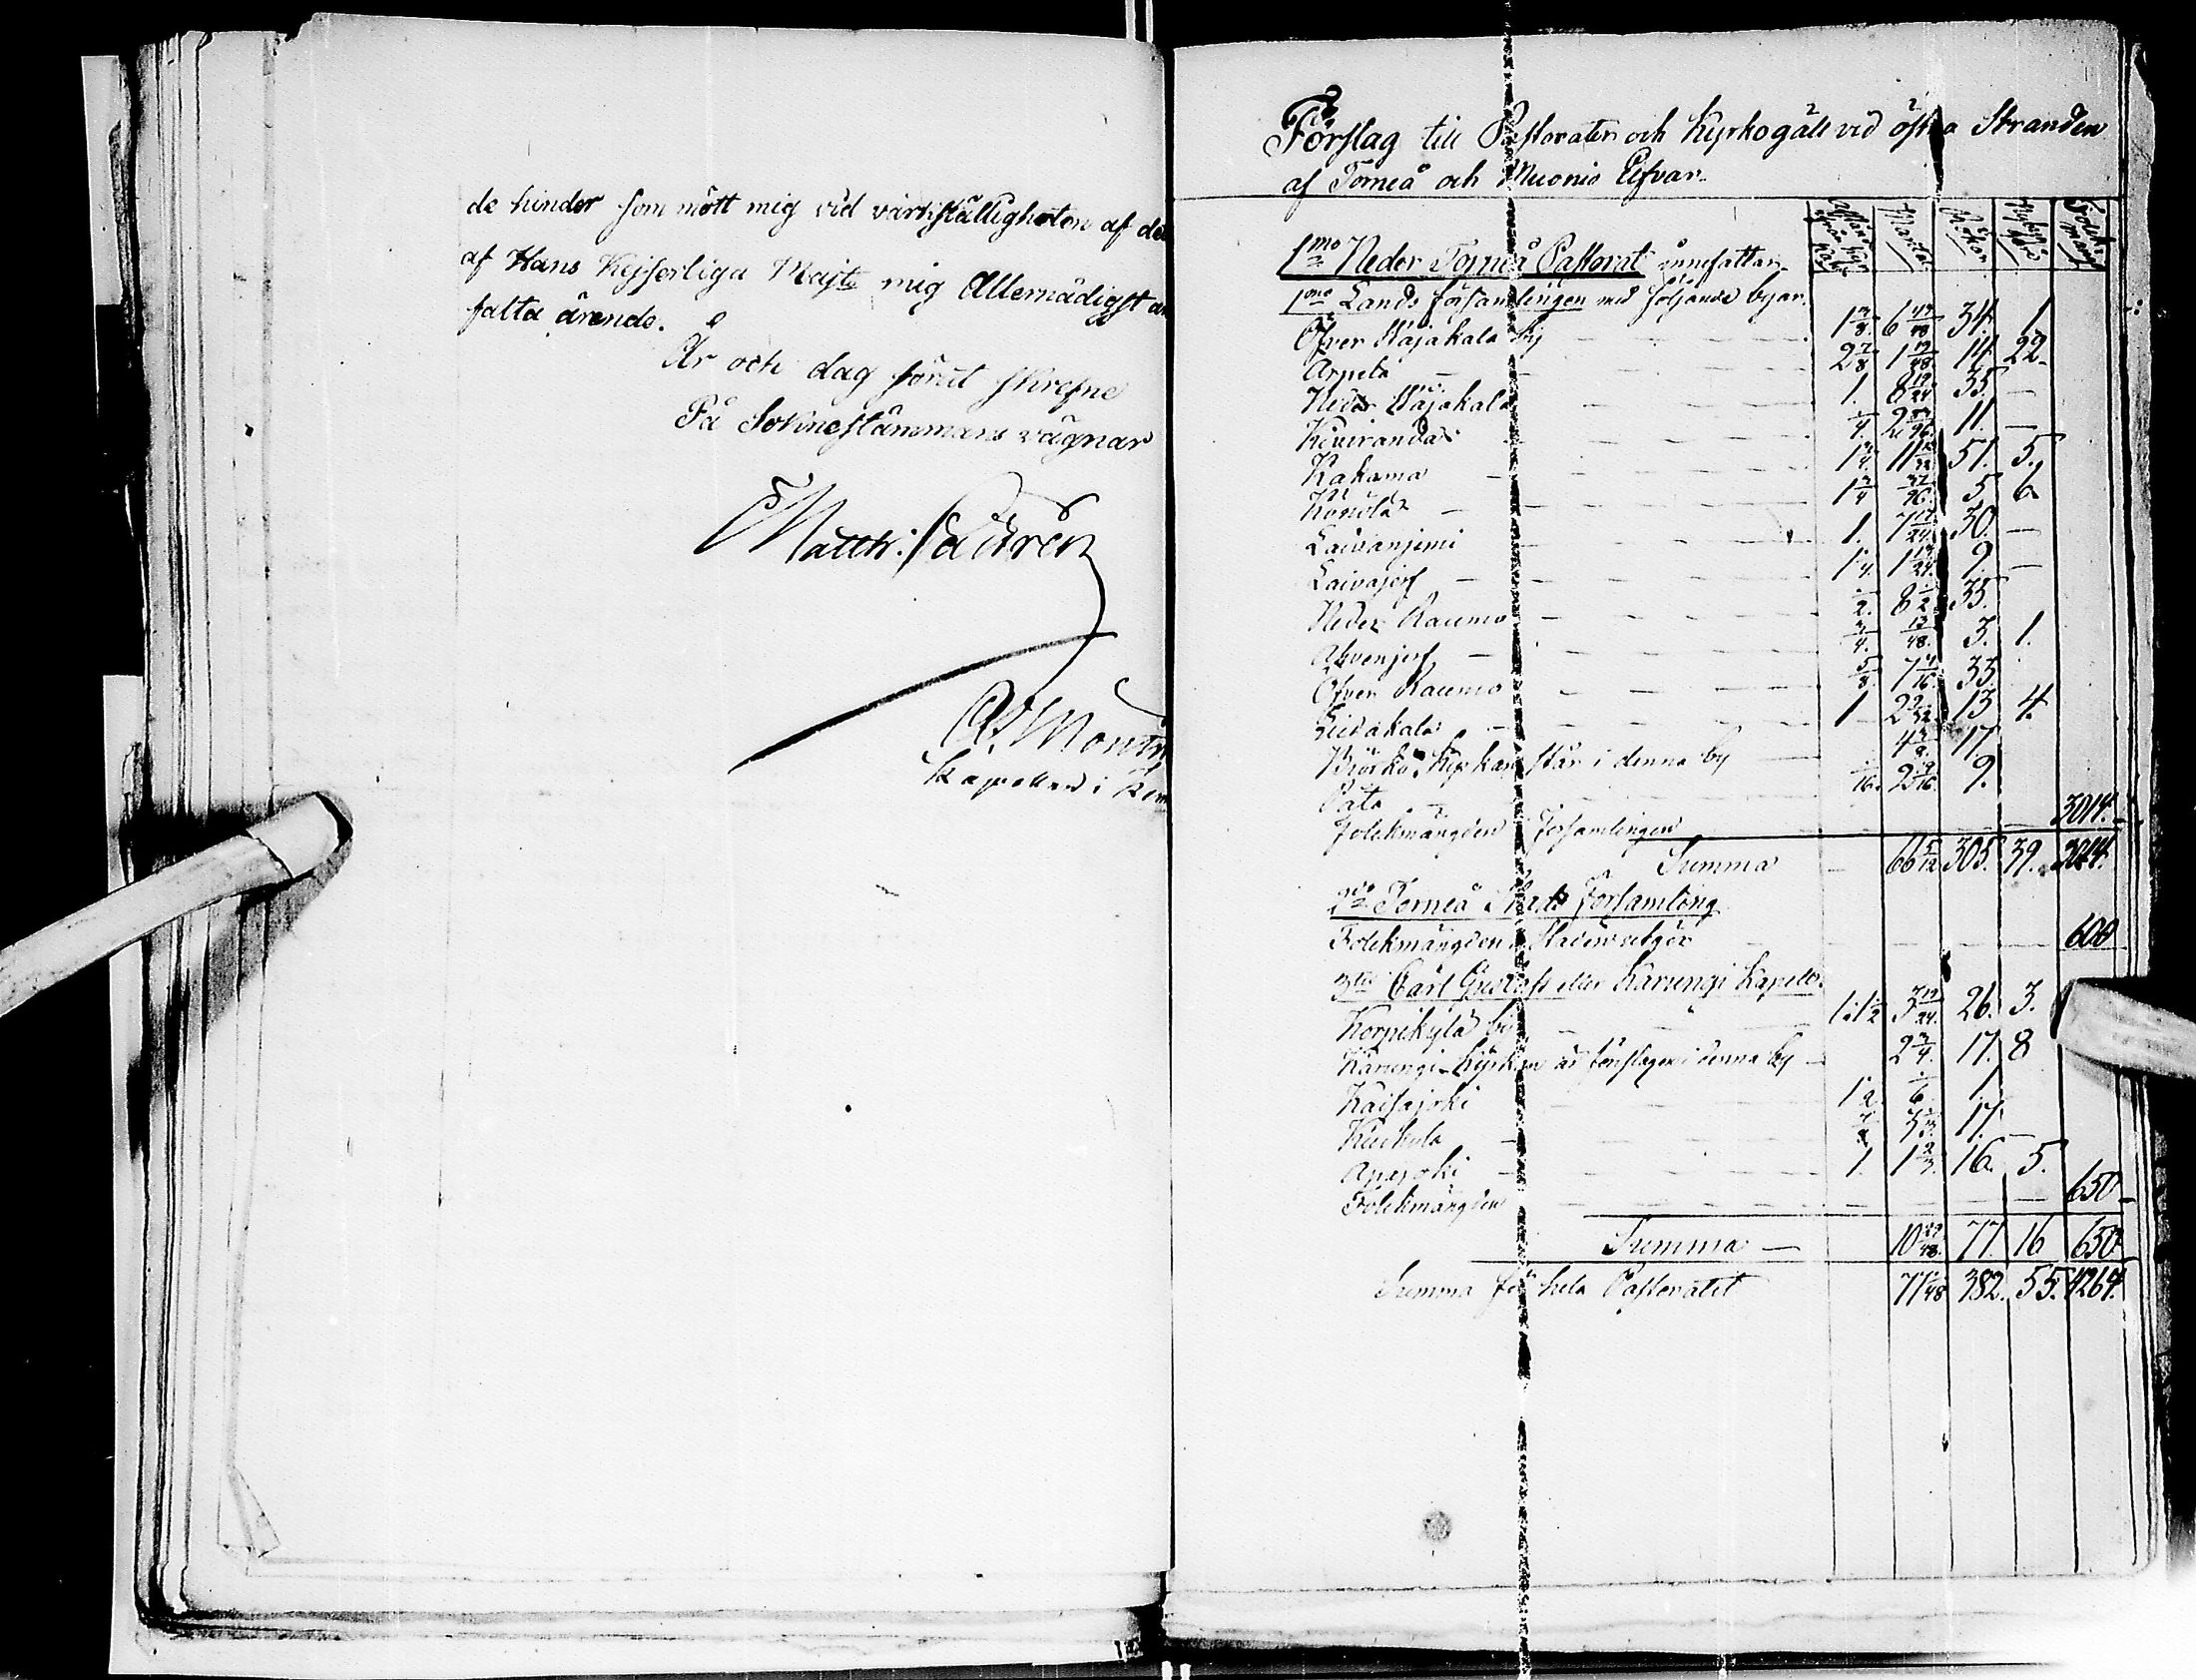 de hinder som mött mig vid värkställigheten af de
af Hans Kejserliga Majts mig Allernådigst an
falta ärende.
År och dag förut skrefne
På Sokne stämmans vägnar
Matth: Castrén
Kapellan i Kem
Förslag till Pastorater och Kyrkogäll vid östra Stranden
af Torneå och Muonio Elfvar.
Mantal Rökar Folk mängd
1mo Neder Torneå Pastorat innefattar
1mo Lands församlingen med följande byar.
Öfver Wojakala by 1 3/8. 6 43/48 34. 1
Arpela 2 7/8 1 19/48 14 22
Neder Wojakala 1. 8 19/24 35. —
Kuiranda 1/4. 11. —
Kakama 51. 5.
Könölä 1 3/4 37/96. 5. 6
Laivanjemi 1. 7 17/24. 30. —
Laivajerf 1 1/4. 9 —
Neder Raumo 1/2. 8 1/2 35.
Ahvenjerf 3/4. 13/48. 3. 1.
Öfver Raumo 5/8. 7 1/16. 33.
Liedakala 1 13 4.
Björkö. Kyrkan står i denna by 17
Pato 9.
Folckmängden i församlingen 3014.
Summa 66 5/12 305. 39. 3014.
2do Torneå Stads Församling
Folckmängden 600
3tio Carl Gustafs eller Karungi Kapell.
Korpikylä by 26. 3.
Karungi. Kyrkan är föreslagen i denna by 2 3/4. 17. 8
Kaisajoki 1/6. 1
Kuckula 17.
Arpajoki 1. 1 2/3. 16. 5.
Folckmängden 650
Summa 10 29/48. 77. 16 650
Summa för hela Pastoratet 77 1/48 382. 55. 4264.